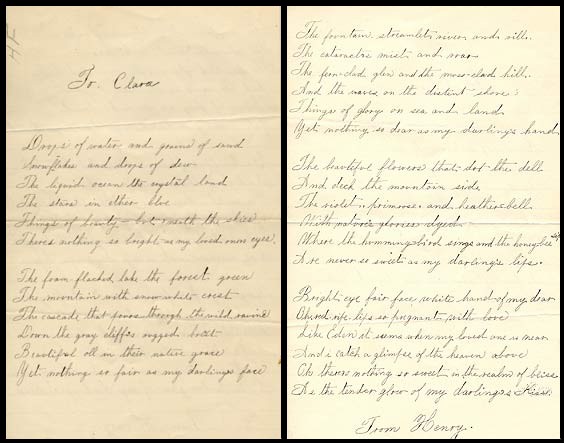 To. Clara
Drops of water and grains of sand
Snowflakes and drops of dew
The liquid ocean the crystal land
The stars in ether blue
Things of beauty - beneath the skies
Theres nothing so bright as my loved ones eyes.
The foam flecked lake the forest green
The mountain with snow white crest
The cascade that pours through the wild ravine
Down the gray cliffs rugged breast
Beautiful all in their native grace
Yet nothing so fair as my darlings face
The fountain streamlet river and rill
The cataracts mist and roar
The fern-clad glen and the moss-clad hill
And the waves on the distant shore
Things of glory on sea and land
Yet nothing so dear as my darlings hand
The beautiful flowers that dot the dell
And deck the mountain side
The violet primrose and heatherbell
With natures glories dyed
Where the hummingbird sings and the honeybee sips
Are never so sweet as my darlings lips.
Bright eye fair face white hand of my dear
And ripe lips so pregnant with love
Like Eden it seems when my loved one is near
And I catch a glimpse of the heaven above
Oh theres nothing so sweet in the realm of bliss
As the tender glow of my darlings Kiss.
From Henry.